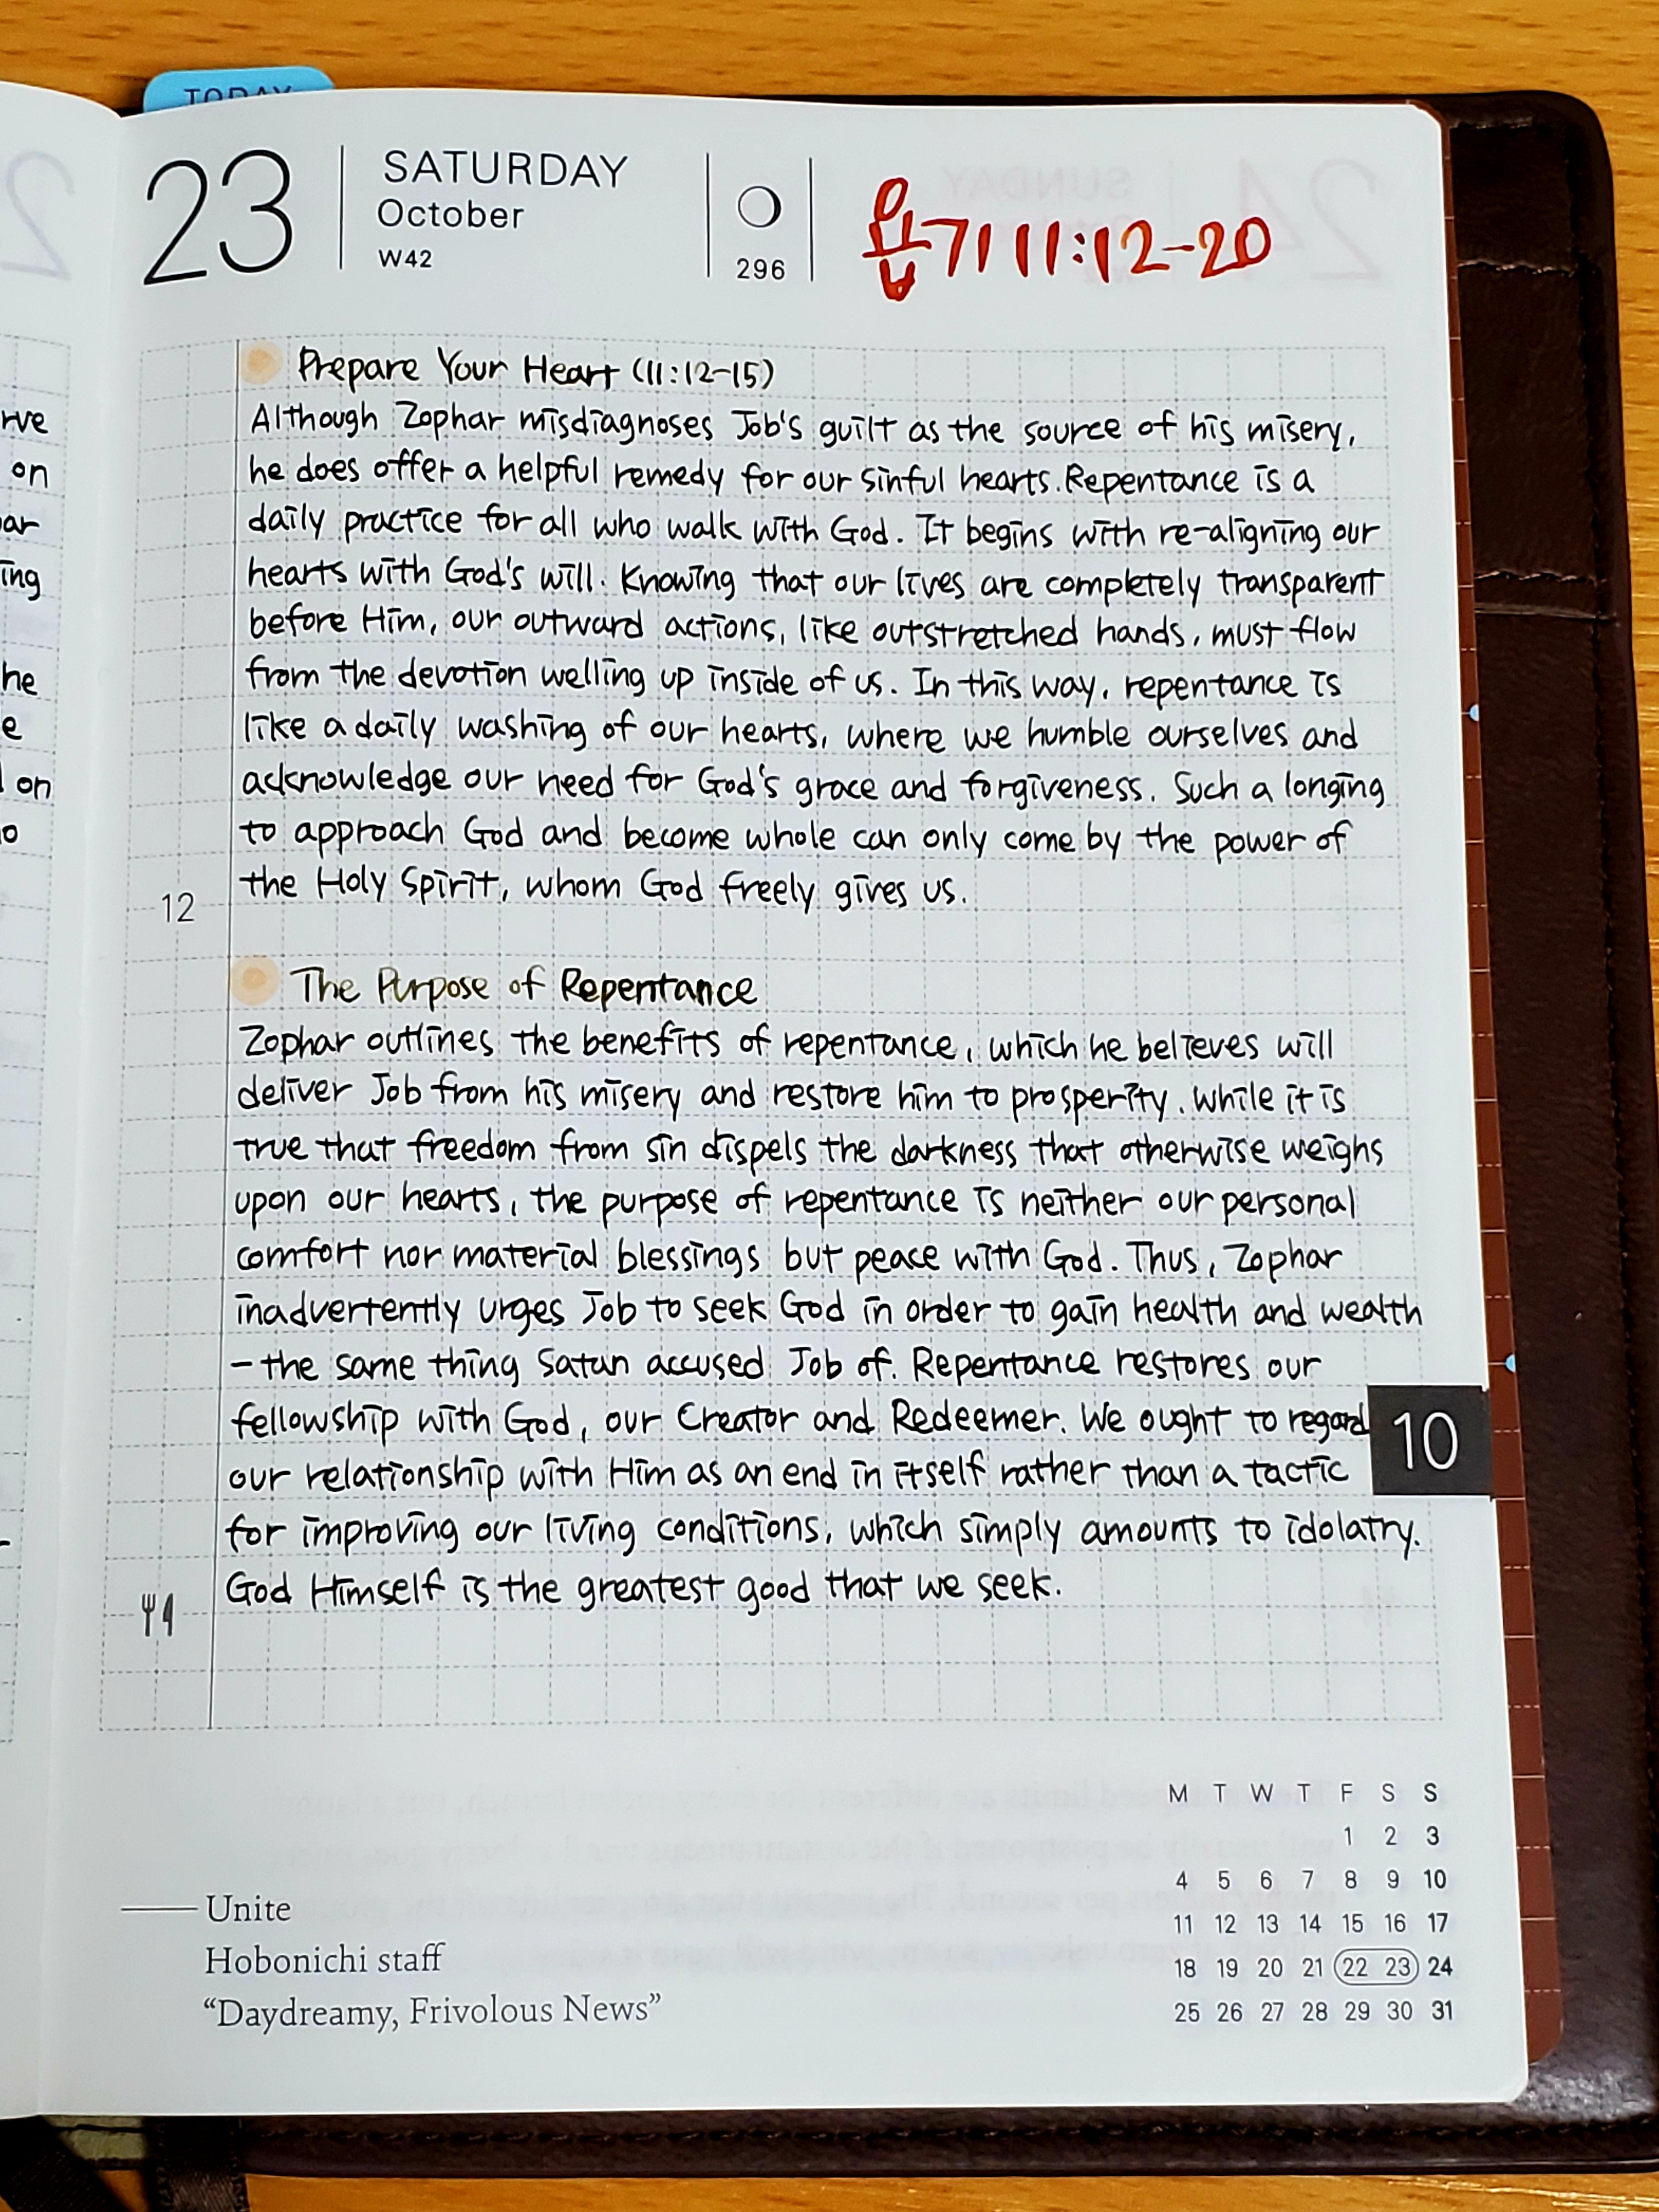 TODAY
23
SATURDAY
October
W42
296
욥기 11:12-20
Prepare Your Heart (11:12-15)
Although Zophar misdiagnoses Job's guilt as the source of his misery,
he does offer a helpful remedy for our sinful hearts. Repentance is a
daily practice for all who walk with God. It begins with re-aligning our
hearts with God's will. Knowing that our lives are completely transparent
before Him, our outward actions, like outstretched hands, must flow
from the devotion welling up inside of us. In this way, repentance is
like a daily washing of our hearts, where we humble ourselves and
acknowledge our need for God's grace and forgiveness. Such a longing
to approach God and become whole can only come by the power of
the Holy Spirit, whom God freely gives us.
12
The Purpose of Repentance
Zophar outlines the benefits of repentance, which he believes will
deliver Job from his misery and restore him to prosperity. While it is
true that freedom from sin dispels the darkness that otherwise weighs
upon our hearts, the purpose of repentance is neither our personal
comfort nor material blessings but peace with God. Thus, Zophar
inadvertently urges Job to seek God in order to gain health and wealth
- the same thing Satan accused Job of. Repentance restores our
fellowship with God, our Creator and Redeemer. We ought to regard
10
our relationship with Him as an end in itself rather than a tactic
for improving our living conditions, which simply amounts to idolatry.
God Himself is the greatest good that we seek.
Unite
Hobonichi staff
“Daydreamy, Frivolous News”
M T W T F S S
1 2 3
4 5 6 7 8 9 10
11 12 13 14 15 16 17
18 19 20 21 22 23 24
25 26 27 28 29 30 31
rve
on
ar
ing
he
e
on
o